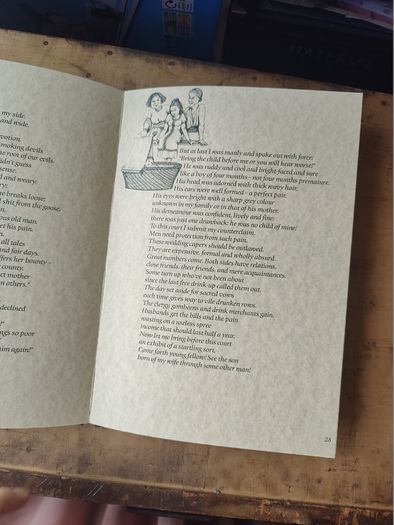 my side.
and wide.
smoking devils
e root of our evils.
dn't guess
sense.
d and weary:
e breaks loose;
shit from the goose.
ous old man.
et his pain.
all tales
and fair days.
ffers her bounty –
county.
ct mother
n others."
declined
ngs so poor
him again!"
But at last I was manly and spoke out with force:
"Bring the child before me or you will hear worse!"
He was ruddy and cool and bright faced and sure
like a boy of four months – not four months premature.
His head was adorned with thick wavy hair,
His ears were well formed – a perfect pair.
His eyes were bright with a sharp grey colour
unknown in my family or in that of his mother.
His demeanour was confident, lively and fine;
there was just one drawback: he was no child of mine!
To this court I submit my counterclaim.
Men need protection from such pain.
These wedding capers should be outlawed.
They are expensive, formal and wholly absurd.
Great numbers come. Both sides have relations,
close friends, their friends, and mere acquaintances.
Some turn up who've not been about
since the last free drink-up called them out.
The day set aside for sacred vows
each time gives way to vile drunken rows.
The clergy, gombeens and drink merchants gain.
Husbands get the bills and the pain
wasting on a useless spree
income that should last half a year.
Now let me bring before this court
an exhibit of a startling sort.
Come forth young fellow! See the son
born of my wife through some other man!
23